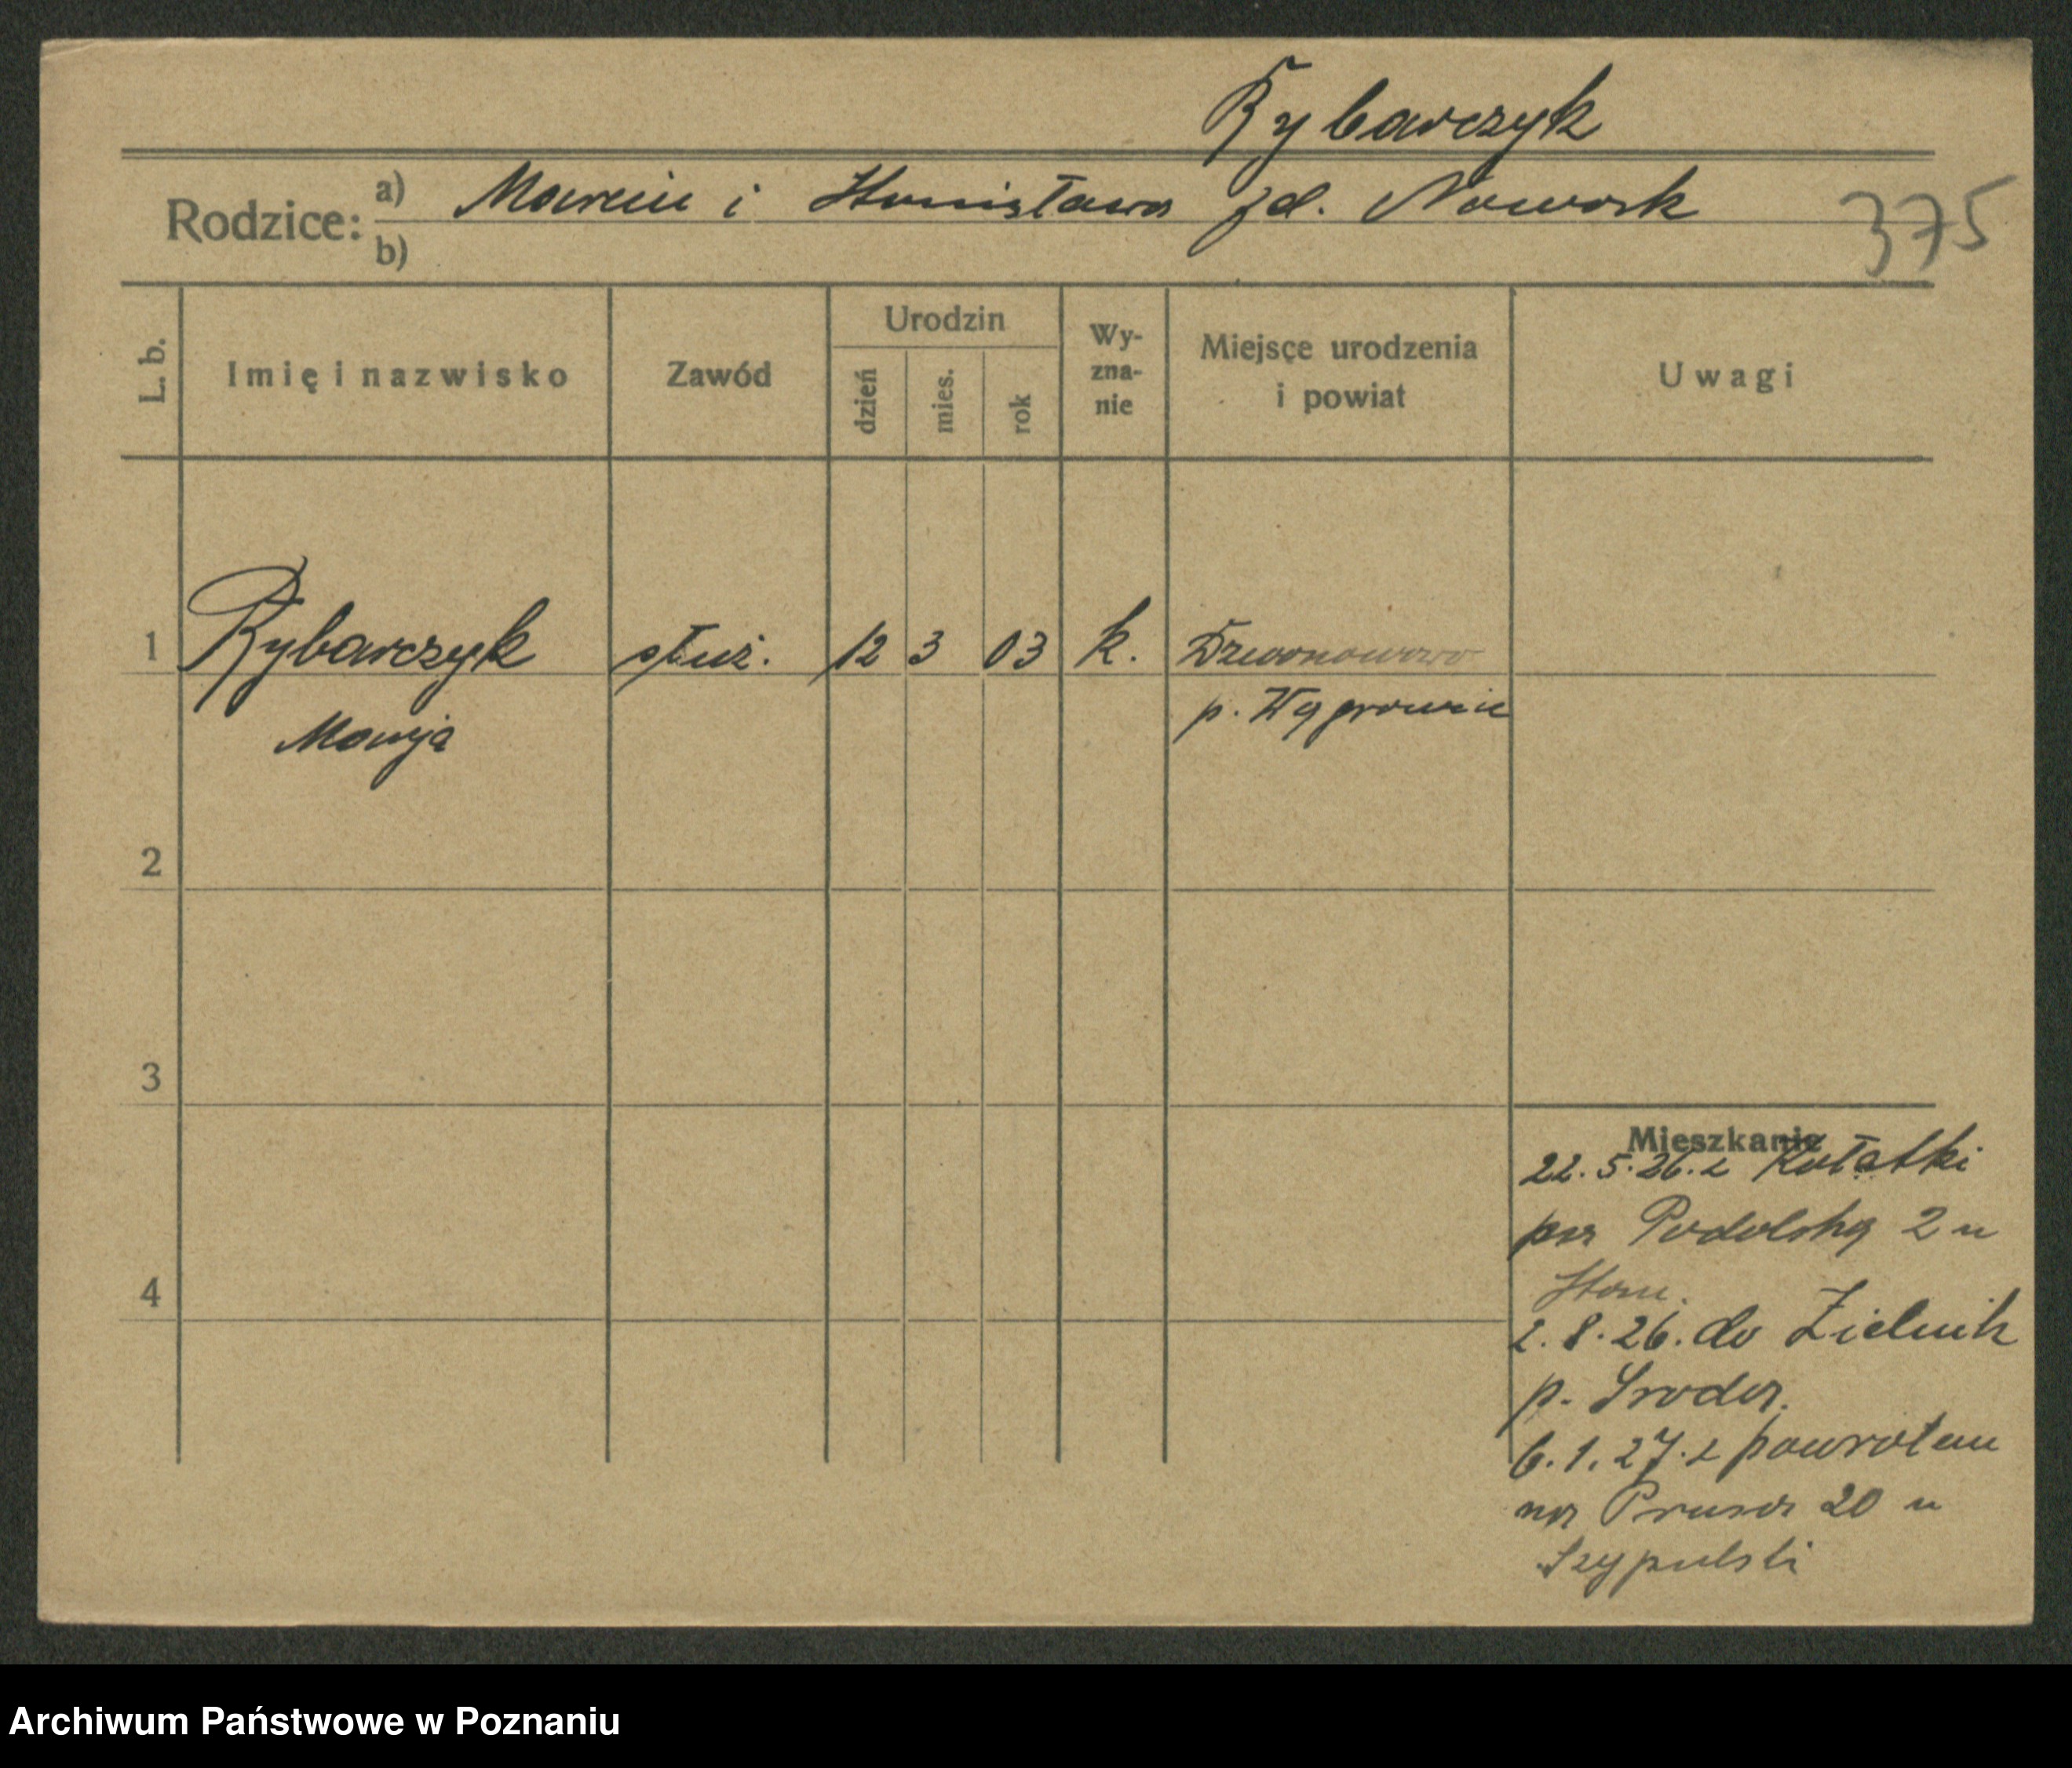 Rybarczyk
Rodzice: a) Marcin i Stanisława zd. Nowak
b)
375
L. b. Imię i nazwisko Zawód Urodzin dzień mies. rok Wy-zna-nie Miejsce urodzenia i powiat Uwagi
1 Rybarczyk służ. 12 3 03 k. Dzwonowowo
Marja p. Wągrowiec
2
3
4
Mieszkanie
22.5.26. z Kołatki
na Podolską 2 u
2.8.26. do Zielnik
p. Środa.
6.1.27. z powrotem
na Prusa 20 u
Szypulski
Archiwum Państwowe w Poznaniu